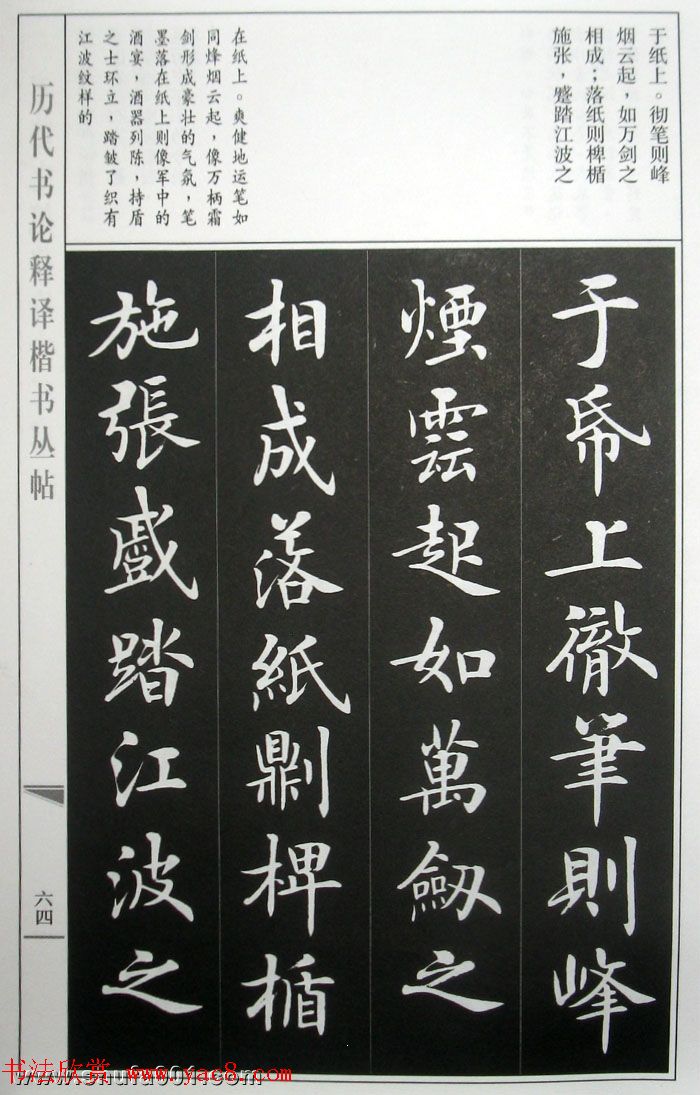 于纸上。彻笔则峰
烟云起，如万剑之
相成；落纸则椑楯
施张，蹙踏江波之
在纸上。爽健地运笔如
同烽烟云起，像万柄霜
剑形成豪壮的气氛，笔
墨落在纸上则像军中的
酒宴，酒器列陈，持盾
之士环立，踏皱了织有
江波纹样的
于帋上徹筆則峰
煙雲起如萬劔之
相成落紙則椑楯
施張蹙踏江波之
历代书论释译楷书丛帖
六四
书法欣赏 www.yac8.com